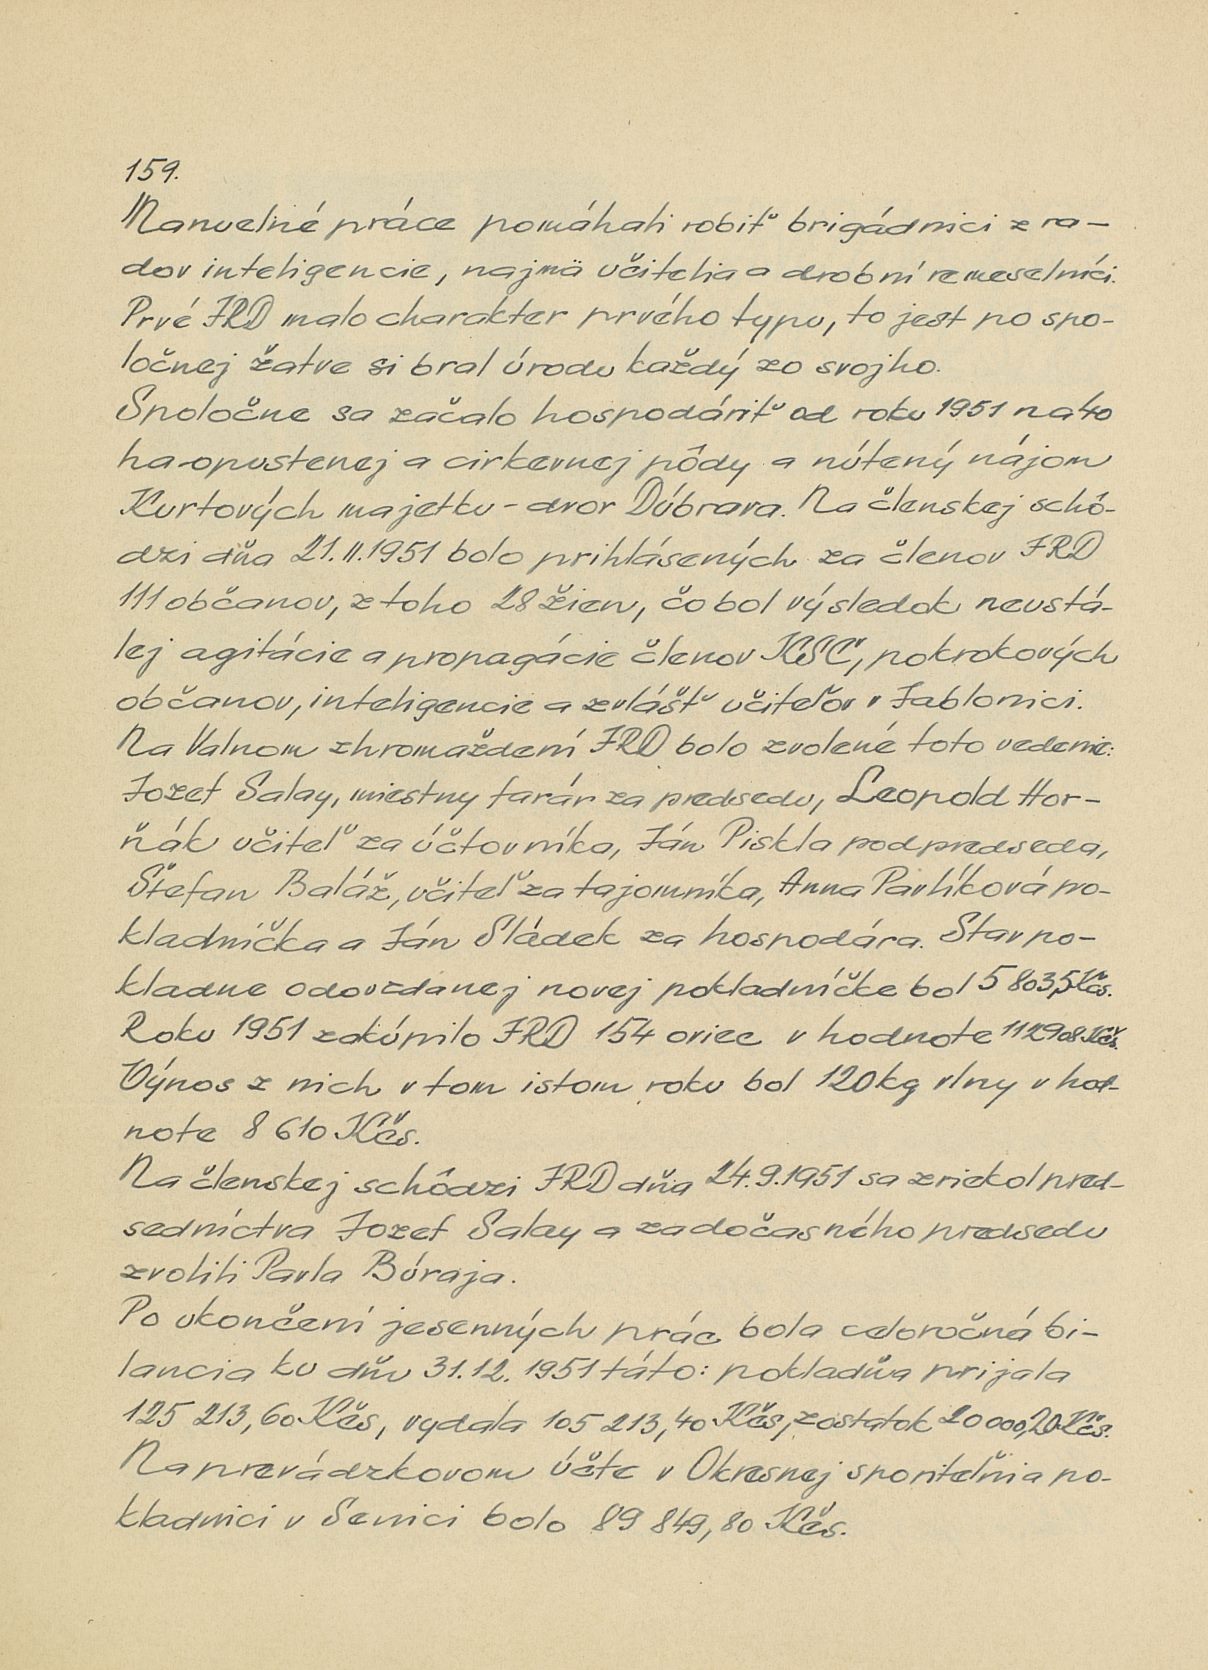 159.
Manuelné práce pomáhali robiť brigádnici z ra-
dov inteligencie, najmä učitelia a drobní remeselníci.
Prvé JRD malo charakter prvého typu, to jest po spo-
ločnej žatve si bral úrodu každý zo svojho.
Spoločne sa začalo hospodáriť od roku 1951 na 40
ha-opustenej a cirkevnej pôdy a nútený nájom
Kurtových majetku - dvor Dúbrava. Na členskej schô-
dzi dňa 21.II.1951 bolo prihlásených za členov JRD
111 občanov, z toho 28 žien, čo bol výsledok neustá-
lej agitácie a propagácie členov KSČ, pokrokových
občanov, inteligencie a zvlášť učiteľov v Jablonici.
Na Valnom zhromaždení JRD bolo zvolené toto vedenie:
Jozef Salay, miestny farár za predsedu, Leopold Hor-
ňák učiteľ za účtovníka, Ján Piskla podpredseda,
Štefan Baláž, učiteľ za tajomníka, Anna Pavlíková po-
kladníčka a Ján Sládek za hospodára. Stav po-
kladne odovzdanej novej pokladníčke bol 5 803,5 Kčs.
Roku 1951 zakúpilo JRD 154 oviec v hodnote 112908 Kčs.
Výnos z nich v tom istom roku bol 120 kg vlny v hod-
note 8 610 Kčs.
Na členskej schôdzi JRD dňa 24.9.1951 sa zriekol pred-
sedníctva Jozef Salay a za dočasného predsedu
zvolili Pavla Búraja.
Po ukončení jesenných prác bola celoročná bi-
lancia ku dňu 31.12. 1951 táto: pokladňa prijala
125 213,60 Kčs, vydala 105 213,40 Kčs, zostatok 20 000,20 Kčs.
Na prevádzkovom účte v Okresnej sporiteľni a po-
kladnici v Senici bolo 89 849,80 Kčs.